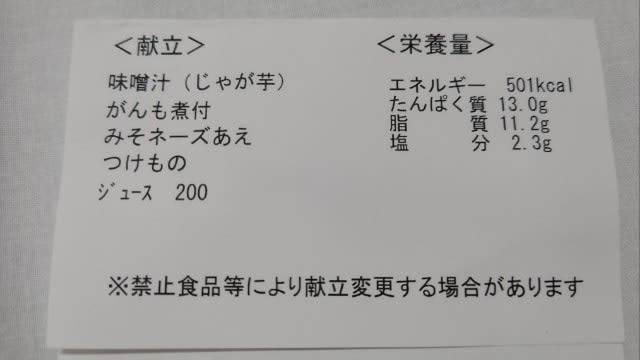 ＜献立＞
味噌汁（じゃが芋）
がんも煮付
みそネーズあえ
つけもの
ｼﾞｭｰｽ　200
＜栄養量＞
エネルギー　501kcal
たんぱく質 13.0g
脂　　　質 11.2g
塩　　　分　2.3g
※禁止食品等により献立変更する場合があります